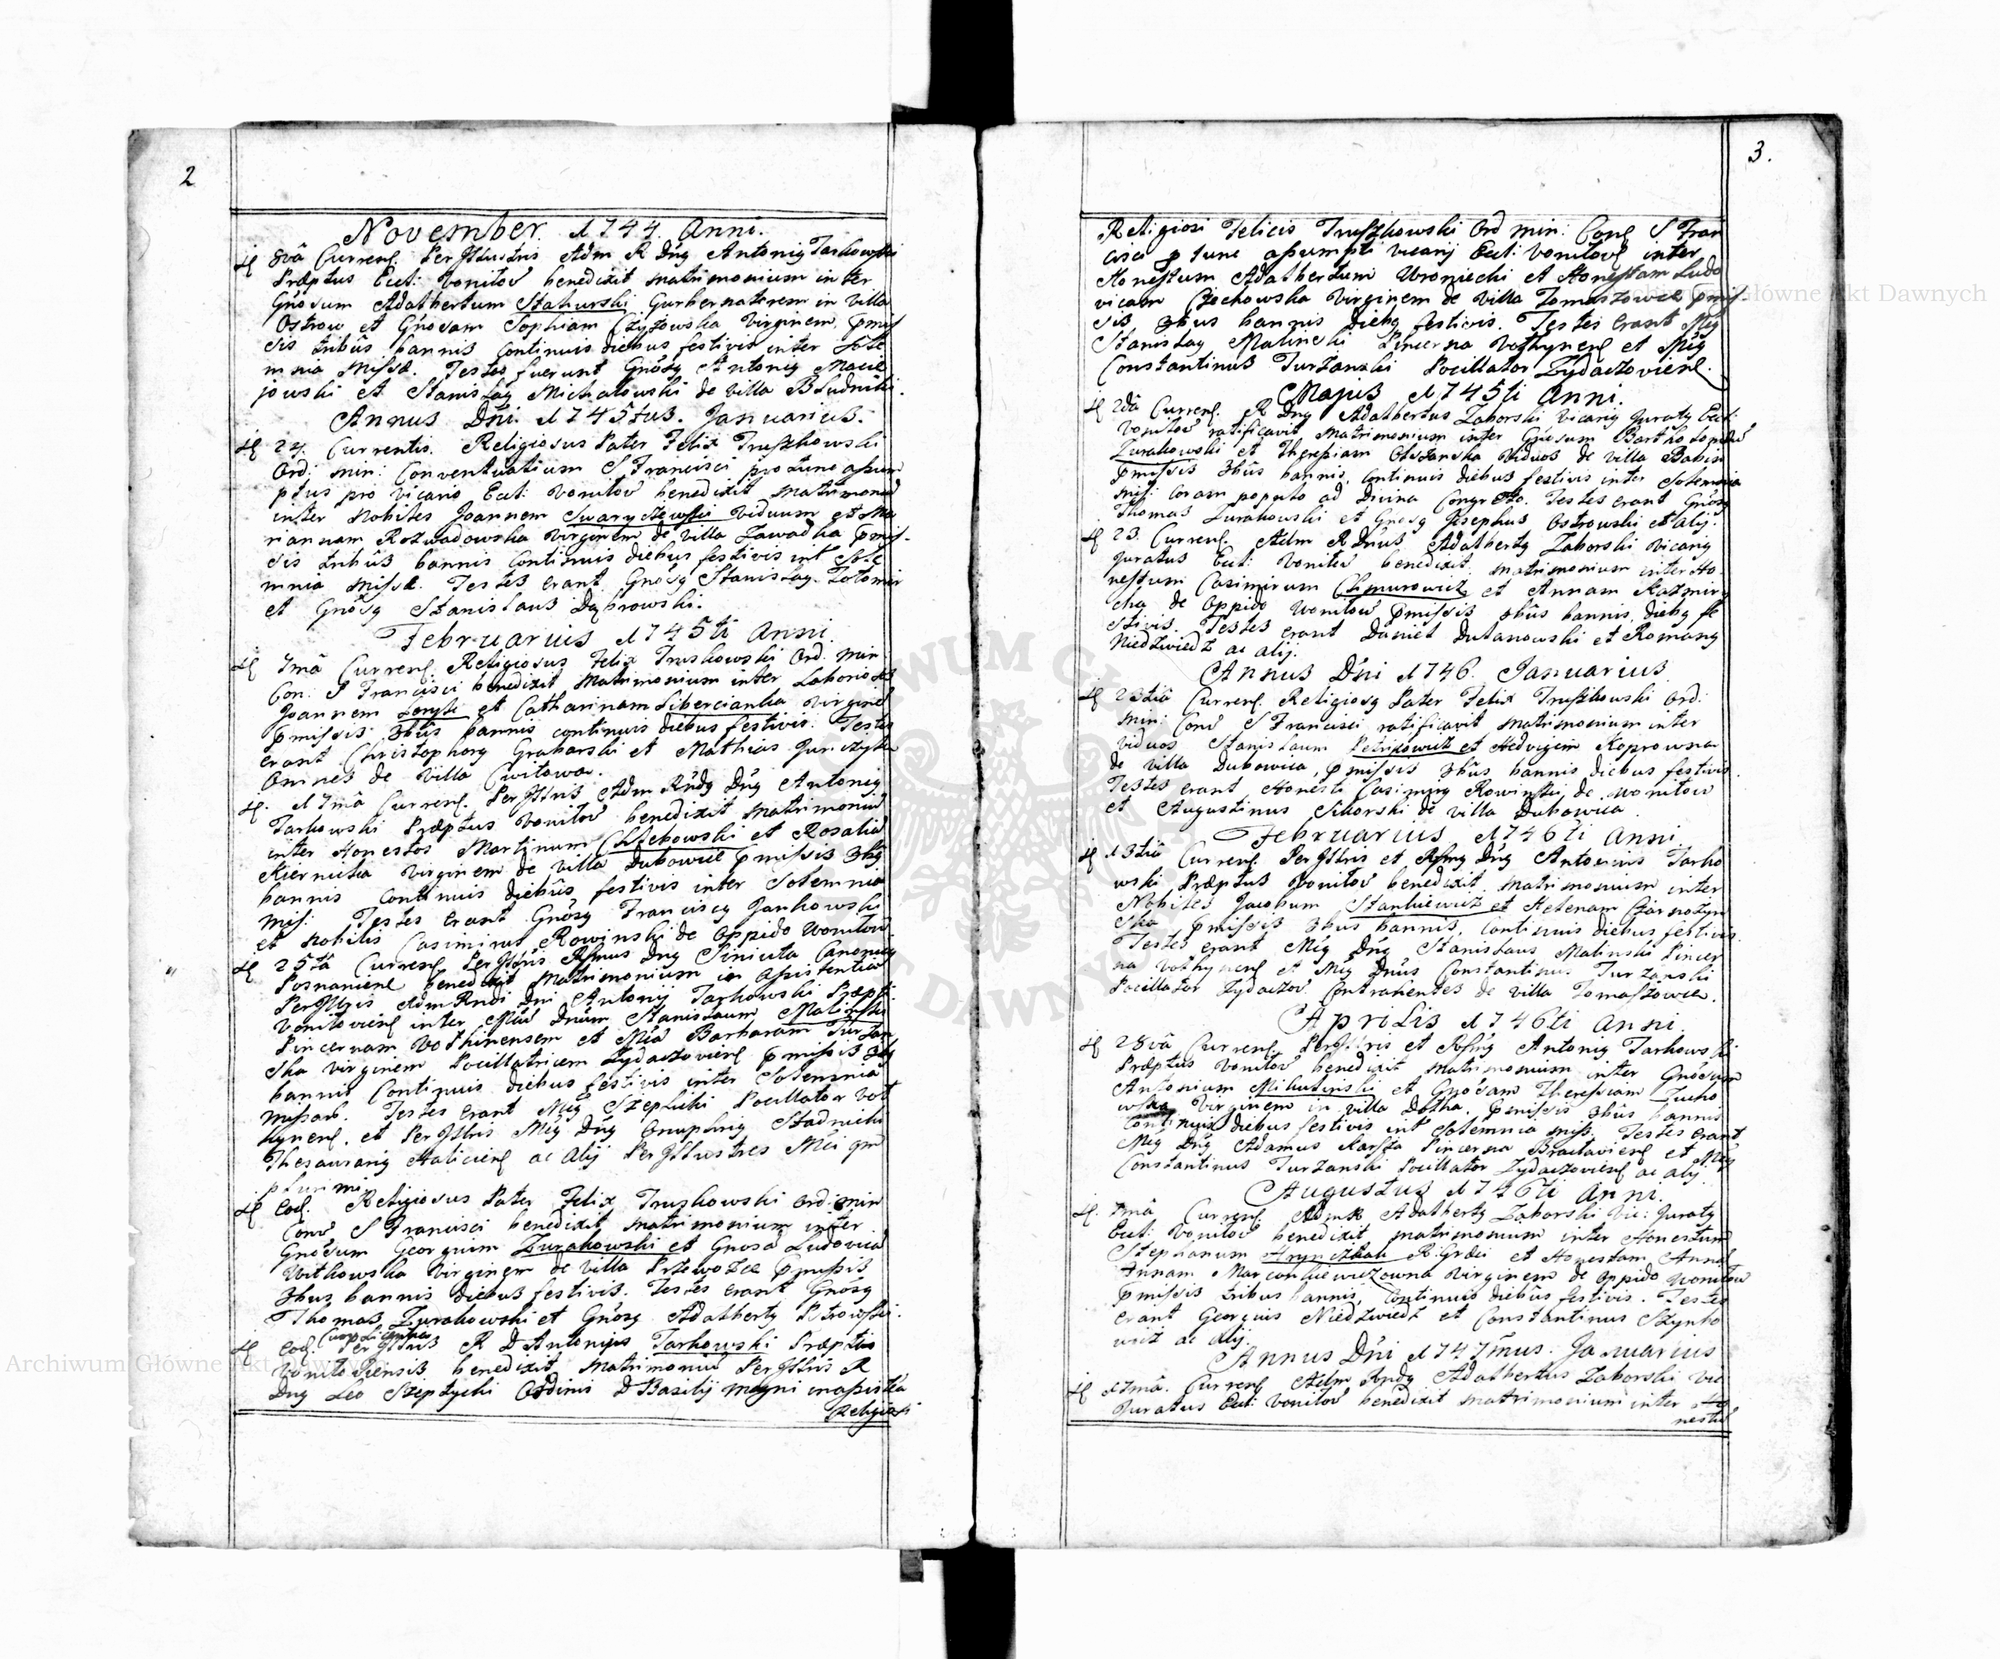 2
November. 1744. Anni.
8vâ Currenß. PerIllustris Adm R Dng Antonig Tarkowski
Præptus Eccł: Vonilov̄ benedixit matrimonium inter
Gnôsum Adalbertum Stahurski Gurbernatorem in Villa
Ostrow et Gnôsam Sophiam Czyżowska Virginem, pmis
sis tribûs bannis Continuis diebus festivis inter Sole
mnia Missæ. Testes fuerunt Gnôsg Antonig Macie
jowski et Stanislag Michałowski de Villa Bludniki.
Annus Dñi 1745tus. Januarius.
24. Currentis. Religiosus Pater Felix Truszkowski
Ord: Min: Conventualium S Francisci pro tunc assum
ptus pro Vicario Eccł: Vonilov̄ benedixit Matrimoniū
inter Nobiles Joannem Swaryczewski Viduum et Ma
riannam Rozwadowska Virginem de Villa Zawadka pmis-
sis tribûs bannis Continuis diebus festivis int Sole
mnia Missæ. Testes erant Gnôsg Stanislag
et Gnôsg Stanislaus Dąbrowski.
Februarius 1745ti Anni.
7mâ Currenß. Religiosus Felix Truszkowski Ord. Min.
Con: S Francisci benedixit Matrimonium inter Laboriosos
Joannem et Catharinam Libercianka Virginē
pmissis 3bûs bannis continuis diebus festivis. Testes
erant Christophorg Grabarski et Mathias
Omnes de Villa Cwitowa.
17mâ Currenß. PerIllris Adm Rñdg Dñg Antonig
Tarkowski Præptus Vonilov̄ benedixit matrimoniū
inter Honestos Martinum et Rosaliā
Kiernicka Virginem de Villa Dubowicæ pmissis 3bûs
bannis Continuis diebûs festivis inter Solemnia
Miss: Testes Erant Gnôsg Franciscg Jankowski
et Nobilis Casimirus Rowinski de Oppido Wonilow
25tâ Currenß PerIllris Rsmus Dng Siniuta Canonicg
Posnanienß benedixit Matrimonium in Assistentia
PerIllris Adm Rndi Dni Antonij Tarkowski Præpti
Vonilovienß inter Mcū Dnūm Stanislaum Malinski
Pincernam Volhinensem et Mcā Barbaram Turzan
ska Virginem Pocillatricem Zydaczovienß pmissis 3bûs
bannis Continuis diebus festivis inter Solemnia
Missarû. Testes erant Mcg Szeplicki Pocillator Vol
hynenß. et PerIllris Mcg Dng Onuphrig Stadnicki
Thesaurarig Halicienß ac alij PerIllustres Mci qm
plurimi.
Eod. Religiosus Pater Felix Truszkowski Ord: Min
Conv̄ S Francisci benedixit matrimonium inter
Gnôsum Georgium Zurakowski et Gnosā Ludovicā
Witkowska Virginem de Villa Przewozec pmissis
3bus bannis diebus festivis. Testes erant Gnôsg
Thomas Zurakowski et Gnôsg Adalbertg Ostrowski.
Eod. PerIllris R D Antonijus Tarkowski Præptus
Voniloviensis benedixit Matrimoniū PerIllris R
Dng Leo Szeptycki Ordinis D Basilij magni in assistēa
Religiosi
3.
Religiosi Felicis Truszkowski Ord Min: Conß S Fran
cisci p tunc assumpti Vicarij Eccł: Vonilovß inter
Honestum Adalbertum Wroniecki et Honestam Ludo
vicam Czochowska Virginem de Villa Tomaszowce pmis
sis 3bus bannis diebg festivis. Testes erant Mcg
Stanislag Malinski Pincerna Volhynenß et Mcg
Constantinus Turzanski Pocillator Zydaczovienß.
Majus 1745ti Anni.
2dâ Currenß. R Dng Adalbertus Zaborski Vicarig Juratg Eccł:
Vonilov̄ ratificavit Matrimonium inter Gnôsum Bartholomeū
Zurakowski et Theresiam Olszanska Viduos de Villa Babin
pmissis 3bûs bannis, Continuis diebus festivis inter Solemnia
Miss: Coram populo ad Divina Congrēto. Testes erant Gnôsg
Thomas Zurakowski et Gnosg Josephus Ostrowski et alij.
23. Currenß. Adm R Dnus Adalbertg Zaborski Vicarig
Juratus Eccł: Vonilov̄ benedixit matrimonium inter Ho-
nestum Casimirum Chmurowicz et Annam Kazmirs
cka de Oppido Wonilow pmissis 3bûs bannis, diebg fe
stivis. Testes erant Daniel Dulanowski et Romang
Niedzwiedz ac alij.
Annus Dñi 1746. Januarius.
23tiâ Currenß Religiosg Pater Felix Truszkowski Ord:
Min: Conv̄ S Francisci ratificavit matrimonium inter
Viduos Stanislaum Petrikowicz et Hedvigem Koprowna
de Villa Dubowica, pmissis 3bûs bannis diebus festivis.
Testes erant Honesti Casimirg Rowinski de Wonilow
et Augustinus Sikorski de Villa Dubowica.
Februarius 1746ti Anni
13tiâ Currenß PerIllris et Rssmg Dng Antonius Tarko
wski Præptus Vonilov̄ benedixit matrimonium inter
Nobiles Jacobum Stankiewicz et Helenam Czarnożyn
ska pmissis 3bus bannis, Continuis diebus festivis
Testes erant Mcg Dng Stanislaus Malinski Pincer
na Volhynenß et Mcg Dnus Constantinus Turzanski
Pocillator Zydaczov̄. Contrahentes de Villa Tomaszowce.
Aprilis 1746ti Anni.
28vâ Currenß PerIllris et Rssmg Antonig Tarkowski
Præptus Vonilov̄ benedixit matrimonium inter Gnôsum
Antonium Mikulinski et Gnôsam Theressiam Zucho
wska Virginem in Villa Dołha, pmissis 3bûs bannis
Continuis diebus festivis int Solemnia Miss. Testes erant
Mcg Dng Adamus Karsza Pincerna Braclavienß et Mcg
Constantinus Turzanski Pocillator Zydaczovienß ac alij.
Augustus 1746ti Anni.
7mâ Currenß. Adm R Adalbertg Zaborski Vic: Juratg
Eccł: Vonilov̄ benedixit matrimonium inter Honestum
Stephanum Hrynczak R: Græci et Honestam Annā
Annam Marconkiewiczowna Virginem de Oppido Wonilow
pmissis tribus bannis, Continuis diebûs festivis. Testes
erant Georgius Niedzwiedz et Constantinus Szynko
wicz ac alij.
Annus Dñi 1747mus. Januarius
17mâ. Currenß Adm Rndg Adalbertus Zaborski Vic
Juratus Eccł: Vonilov̄ benedixit matrimonium inter Ho
nestū